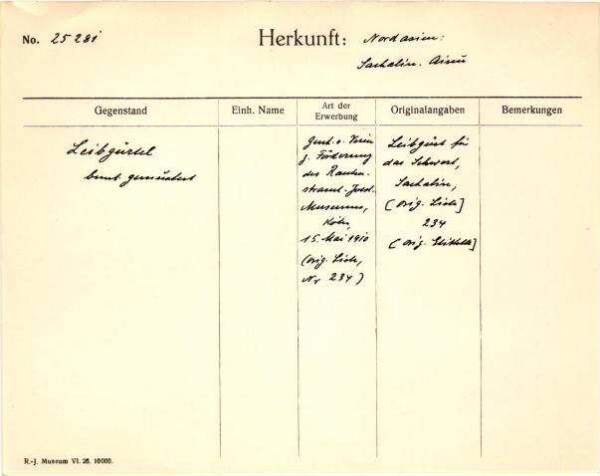 No. 25281
Herkunft: Nordasien:
Sachalin. Ainu
Gegenstand
Einh. Name
Art der
Erwerbung
Originalangaben
Bemerkungen
Leibgürtel
bunt gemustert
Gesch. v. Verein
z. Förderung
des Rauten-
strauch-Joest
Museums,
Köln,
15. Mai 1910
(orig. Liste,
Nr 234)
Leibgurt für
das Schwert,
Sachalin,
[orig. Liste]
234
[orig. Etikette]
R.-J. Museum VI. 26. 10000.